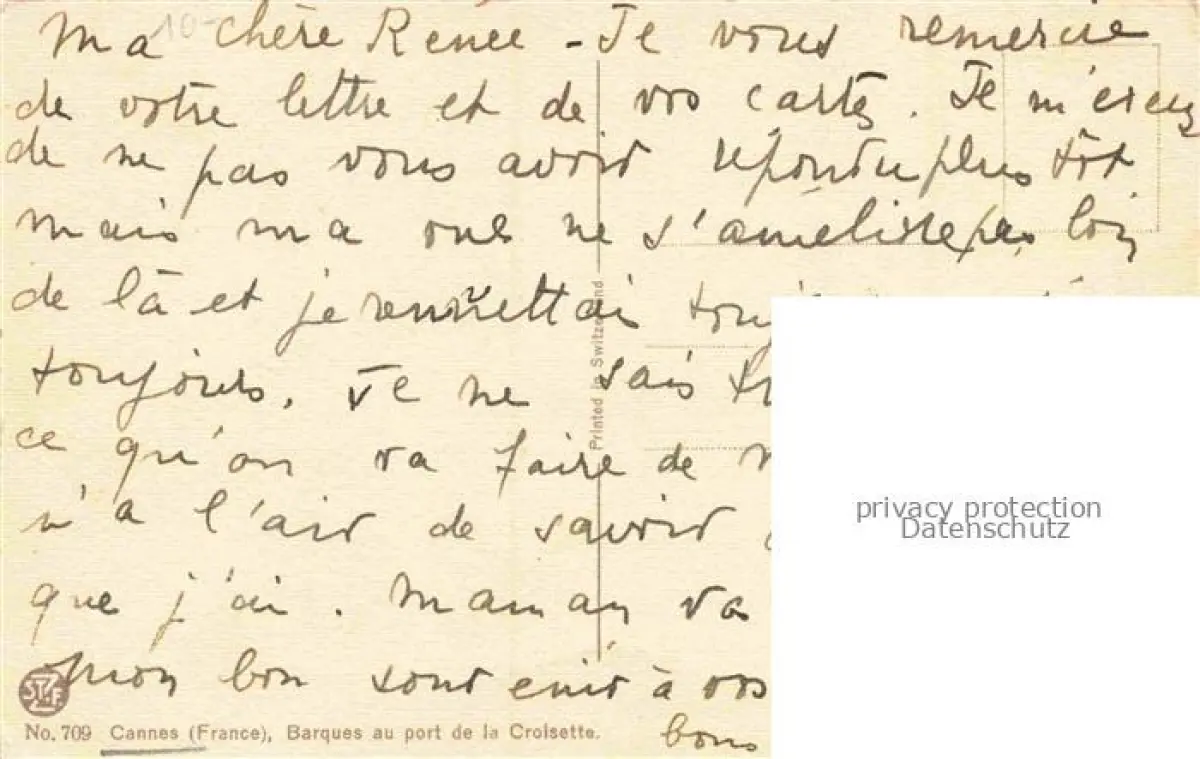 Ma chère Renée - Je vous remercie
de votre lettre et de vos cartes. Je m'excuse
de ne pas vous avoir répondu plus tôt
mais ma vue ne s'améliore pas loin
de là et je remettais
toujours. Je ne sais
ce qu'on va faire de
n'a l'air de savoir
que j'ai. Maman va
mon bon souvenir à vos
bons
Printed in Switzerland
No. 709 Cannes (France), Barques au port de la Croisette.
privacy protection
Datenschutz